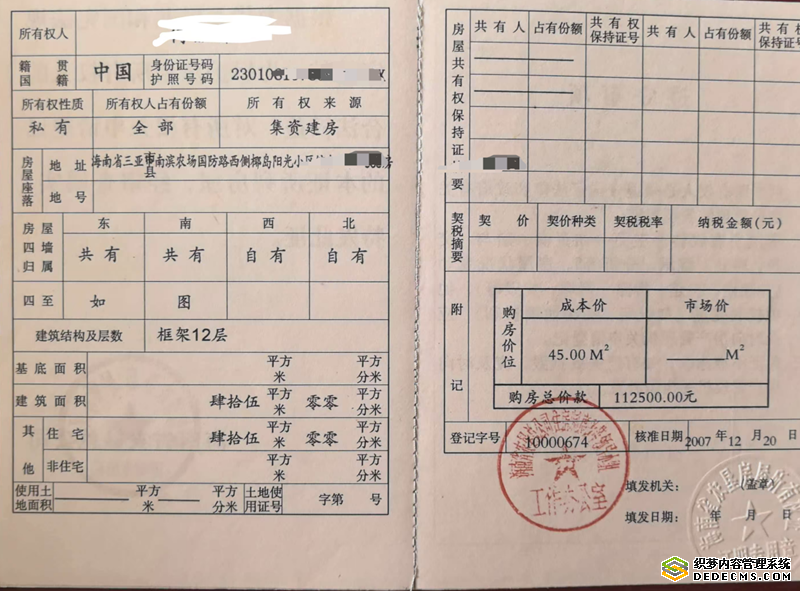 所有权人
籍贯 国籍 中国 身份证号码 护照号码 230108
所有权性质 所有权人占有份额 所有权来源
私有 全部 集资建房
房屋座落 地址 海南省三亚市县南滨农场国防路西侧椰岛阳光小区 房
地号
房屋四墙归属 东 南 西 北
共有 共有 自有 自有
四至 如 图
建筑结构及层数 框架12层
基底面积 平方米 平方分米
建筑面积 肆拾伍 平方米 零零 平方分米
其他 住宅 肆拾伍 平方米 零零 平方分米
非住宅 平方米 平方分米
使用土地面积 平方米 平方分米 土地使用证号 字第 号
房屋共有权保持证摘要 共有人 占有份额 共有权保持证号 共有人 占有份额 共有权保持证号
契税摘要 契价 契价种类 契税税率 纳税金额(元)
附记
购房价位 成本价 市场价
45.00 M² M²
购房总价款 112500.00元
登记字号 10000674 核准日期 2007 年 12 月 20 日
填发机关: (盖章)
填发日期: 年 月 日
工作办公室
织梦内容管理系统
DEDECMS.COM